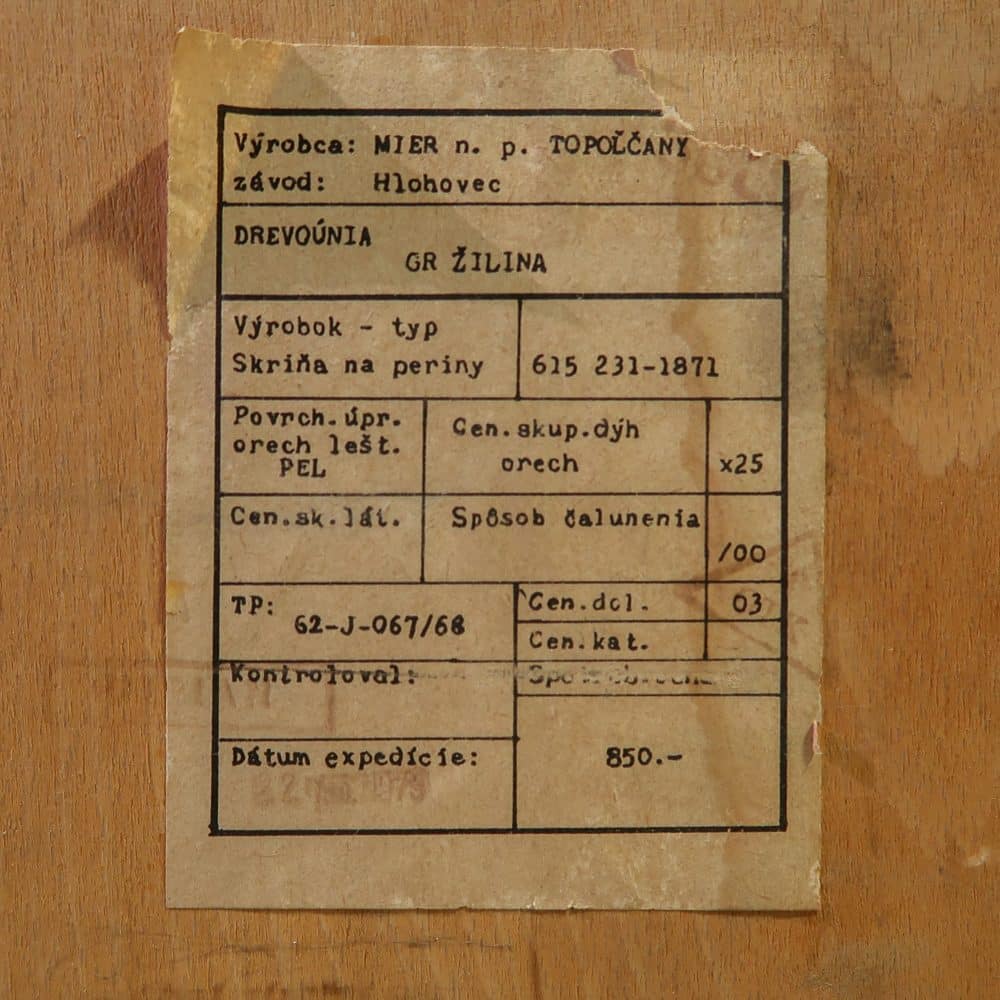 Výrobca: MIER n. p. TOPOĽČANY
závod: Hlohovec
DREVOÚNIA
GR ŽILINA
Výrobok - typ
Skriňa na periny
615 231-1871
Povrch.úpr.
orech lešt.
PEL
Cen.skup.dýh
orech
x25
Cen.sk.lát.
Spôsob čalunenia
/00
TP:
62-J-067/68
Cen.dol.
03
Cen.kat.
Kontroloval:
Dátum expedície:
850.-